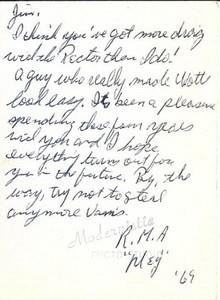 Jim,
I think you've got more drag
with the Rector than I do!
A guy who really made Watt
look easy. It been a pleasure
spending these four years
with you and I hope
everything turns out for
you in the future. By the
way, try not to steal
anymore vans.
Modernistic
PHOTO
R.M.A
"pleg"
'69